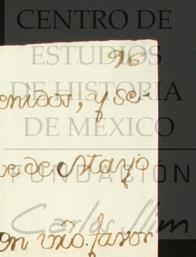 CENTRO DE
ESTUDIOS
96
DE HISTORIA
enidos, y se-
DE MÉXICO
de Mayo
FUNDACIÓN
Carlos Slim
en mõ. favor